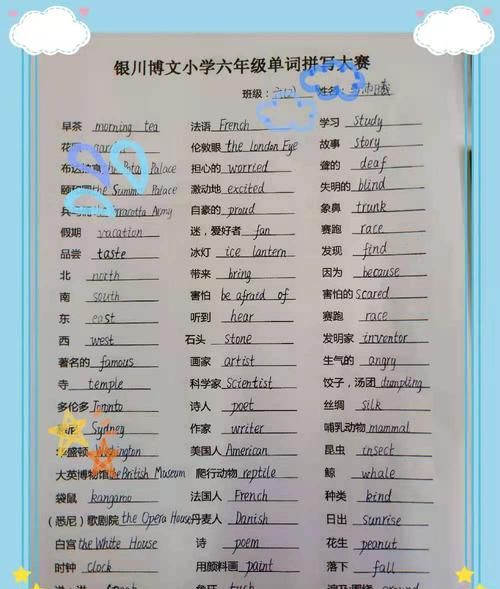 银川博文小学六年级单词拼写大赛
班级：六(2) 姓名：
早茶 morning tea 法语 French 学习 study
花 伦敦眼 the London Eye 故事 story
布达 Palace 担心的 worried 聋的 deaf
颐和园 the Summer Palace 激动地 excited 失明的 blind
兵马 Terracotta Army 自豪的 proud 象鼻 trunk
假期 vacation 迷，爱好者 fan 赛跑 race
品尝 taste 冰灯 ice lantern 发现 find
北 north 带来 bring 因为 because
南 south 害怕 be afraid of 害怕的 scared
东 east 听到 hear 赛跑 race
西 west 石头 stone 发明家 inventor
著名的 famous 画家 artist 生气的 angry
寺 temple 科学家 Scientist 饺子，汤团 dumpling
多伦多 Toronto 诗人 poet 丝绸 silk
Sydney 作家 writer 哺乳动物 mammal
盛顿 Washington 美国人 American 昆虫 insect
大英博物馆 the British Museum 爬行动物 reptile 鲸 whale
袋鼠 kangaroo 法国人 French 种类 kind
（悉尼）歌剧院 the Opera House 丹麦人 Danish 日出 sunrise
白宫 the White House 诗 poem 花生 peanut
时钟 clock 用颜料画 paint 落下 fall